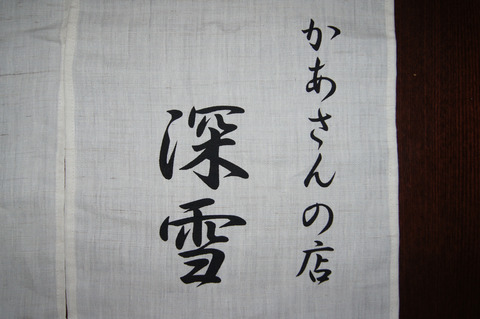 かあさんの店
深雪